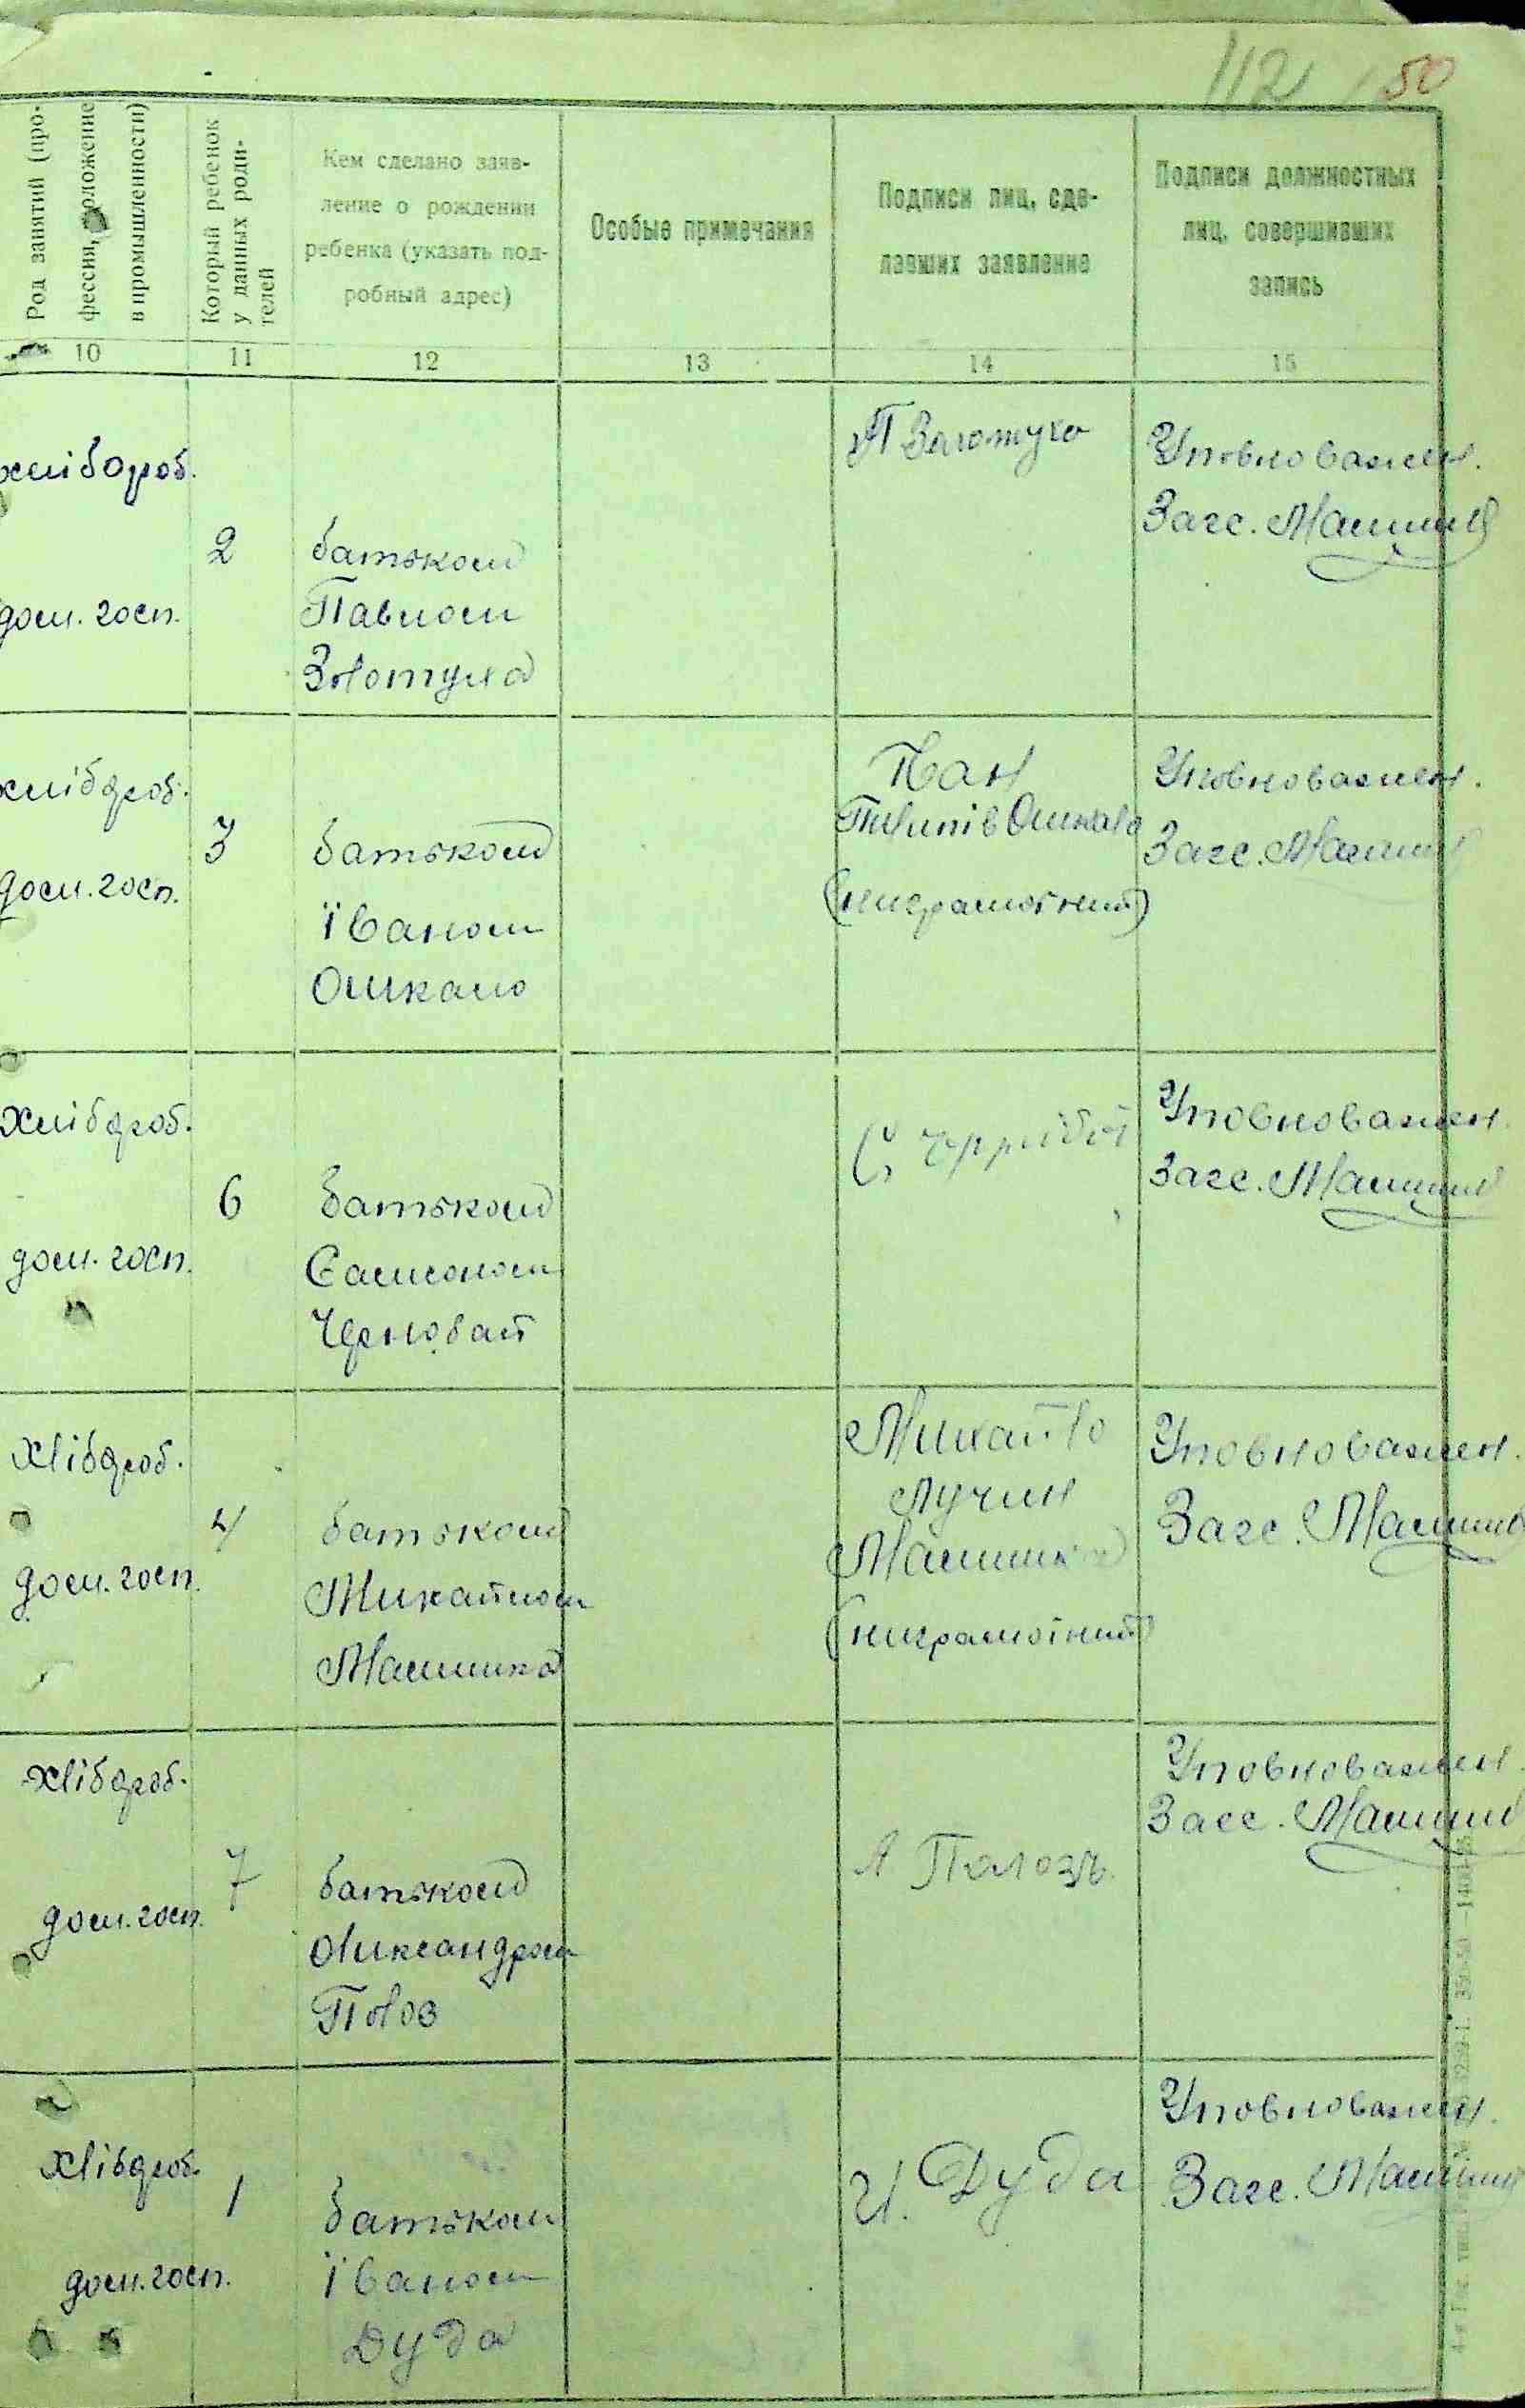 112 50
Род занятий (про-
фессия, положение
в промышленности)
Который ребенок
у данных роди-
телей
Кем сделано заяв-
ление о рождении
ребенка (указать под-
робный адрес)
Особые примечания
Подписи лиц, сде-
лавших заявление
Подписи должностных
лиц, совершивших
запись
10 11 12 13 14 15
хлібороб.
дом. госп.
2
батьком
Павлом
Золотуха
П Золотуха
Уповноважен.
Загс.
хлібороб.
дом. госп.
3
батьком
Їваном
Ошкало
Ошкало
(неграмотний)
Уповноважен.
Загс.
хлібороб.
дом. госп.
6
батьком
Самсоном
Чорнобай
Уповноважен.
Загс.
хлібороб.
дом. госп.
4
батьком
Михайлом
Машинка
Михайло
Лучин
Машинка
(неграмотний)
Уповноважен.
Загс.
хлібороб.
дом. госп.
7
батьком
Олександром
Полоз
А Полозъ
Уповноважен.
Загс.
хлібороб.
дом. госп.
1
батьком
Їваном
Дуда
И. Дуда
Уповноважен.
Загс.